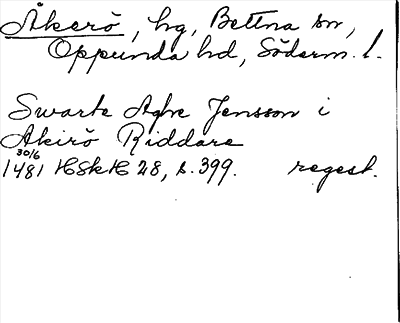 Åkerö, hg, Bettna sn,
Oppunda hd, Söderm. l.
Swarte Aghe Jensson i
Akirö Riddare
30/6
1481 HSkH 28, s. 399. regest.